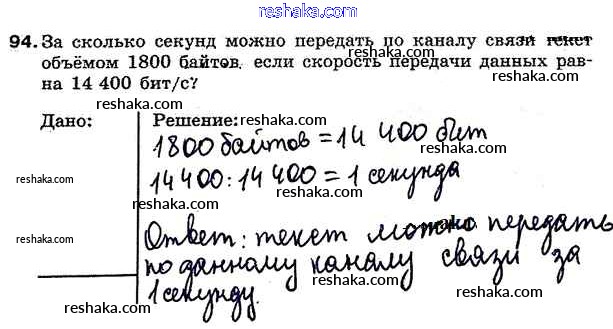 www.reshaka.com
94. За сколько секунд можно передать по каналу связи текст
объёмом 1800 байтов, если скорость передачи данных рав-
на 14 400 бит/с?
reshaka.com
reshaka.com
reshaka.com
Дано:
Решение:
reshaka.com
1800 байтов = 14 400 бит
reshaka.com
reshaka.com
14 400 : 14 400 = 1 секунда
reshaka.com
reshaka.com
reshaka.com
Ответ: текст можно передать
reshaka.com
по данному каналу связи за
reshaka.com
1 секунду.
reshaka.com
reshaka.com